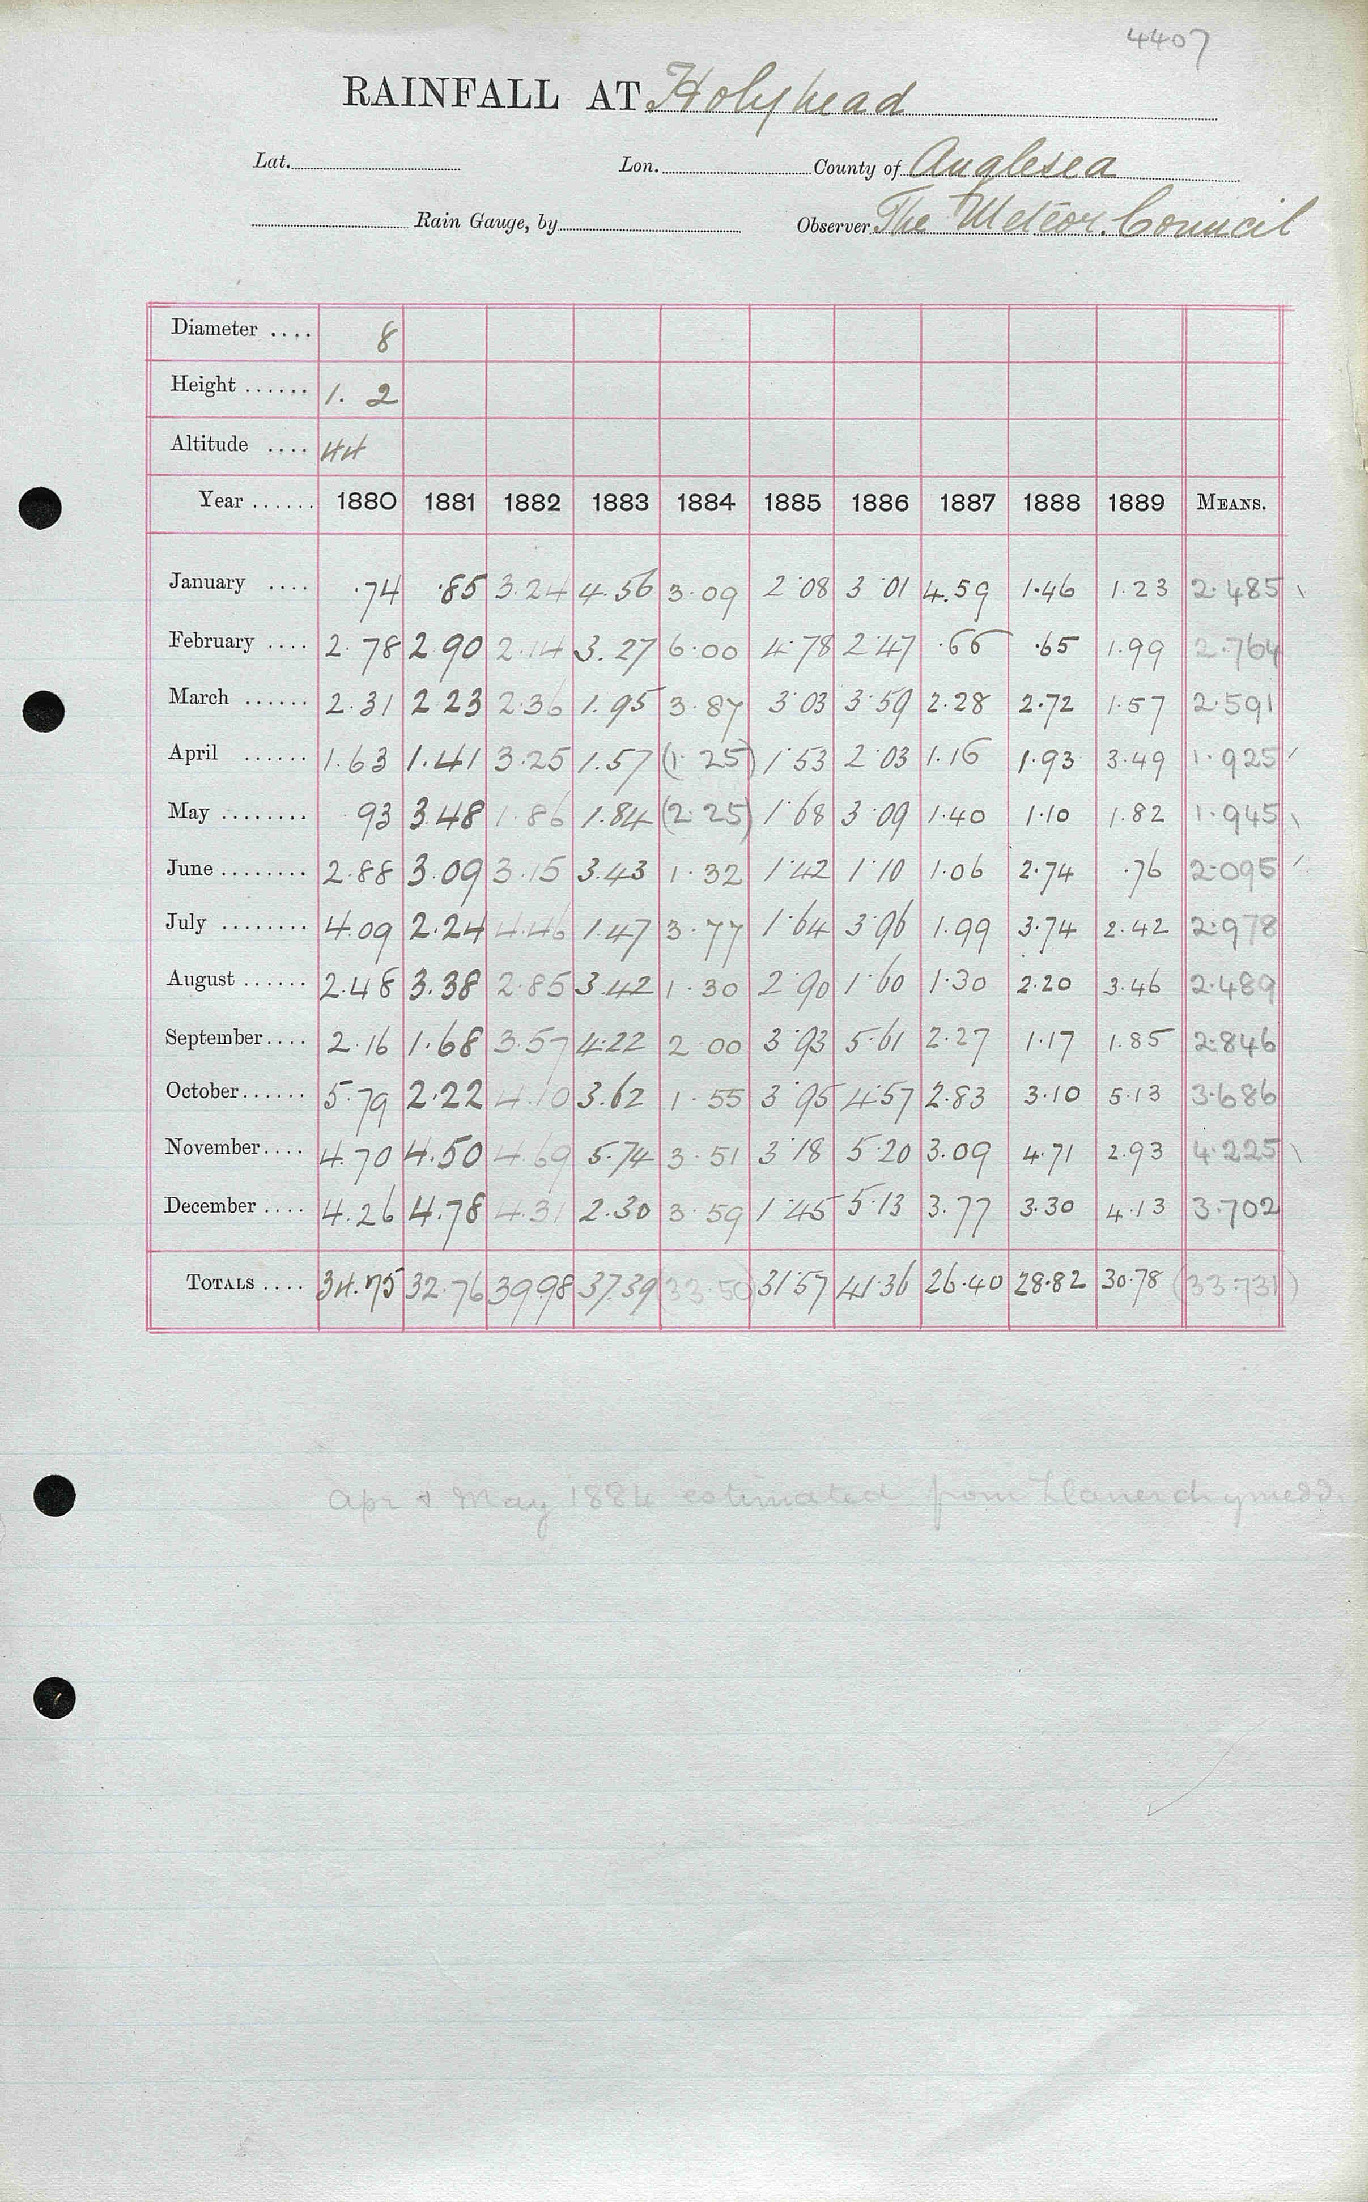 4407
RAINFALL AT Holyhead
Lat. Lon. County of Anglesea
Rain Gauge, by Observer The Meteor. Council
Diameter .... 8
Height ...... 1. 2
Altitude .... 44
Year ...... 1880 1881 1882 1883 1884 1885 1886 1887 1888 1889 MEANS.
January .... .74 .85 3.24 4.56 3.09 2.08 3.01 4.59 1.46 1.23 2.485
February .... 2.78 2.90 2.14 3.27 6.00 4.78 2.47 .66 .65 1.99 2.764
March ...... 2.31 2.23 2.36 1.95 3.87 3.03 3.59 2.28 2.72 1.57 2.591
April ...... 1.63 1.41 3.25 1.57 (1.25) 1.53 2.03 1.16 1.93 3.49 1.925
May ........ 93 3.48 1.86 1.84 (2.25) 1.68 3.09 1.40 1.10 1.82 1.945
June ........ 2.88 3.09 3.15 3.43 1.32 1.42 1.10 1.06 2.74 .76 2.095
July ........ 4.09 2.24 4.46 1.47 3.77 1.64 3.96 1.99 3.74 2.42 2.978
August ...... 2.48 3.38 2.85 3.42 1.30 2.90 1.60 1.30 2.20 3.46 2.489
September.... 2.16 1.68 3.57 4.22 2.00 3.93 5.61 2.27 1.17 1.85 2.846
October...... 5.79 2.22 4.10 3.62 1.55 3.95 4.57 2.83 3.10 5.13 3.686
November.... 4.70 4.50 4.69 5.74 3.51 3.18 5.20 3.09 4.71 2.93 4.225
December .... 4.26 4.78 4.31 2.30 3.59 1.45 5.13 3.77 3.30 4.13 3.702
TOTALS .... 34.75 32.76 39.98 37.39 (33.50) 31.57 41.36 26.40 28.82 30.78 (33.731)
Apr & May 1884 estimated from Llanerchymedd.